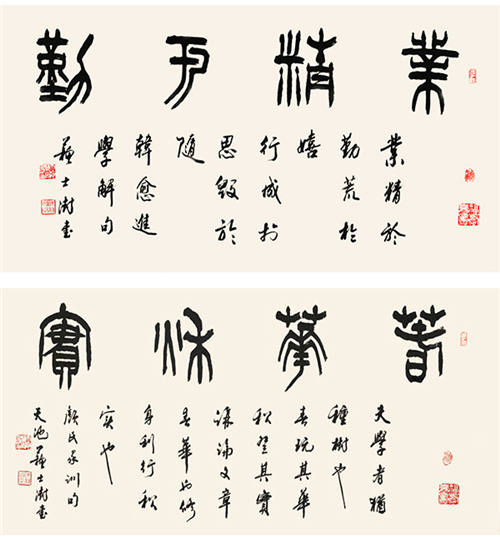 業精于勤
業精於
勤荒於
嬉
行成於
思毀於
隨
韓愈進
學解句
蘇士澍書
春華秋實
夫學者猶
種樹也
春玩其華
秋登其實
講論文章
春華也修
身利行秋
實也
顏氏家訓句
天池蘇士澍書